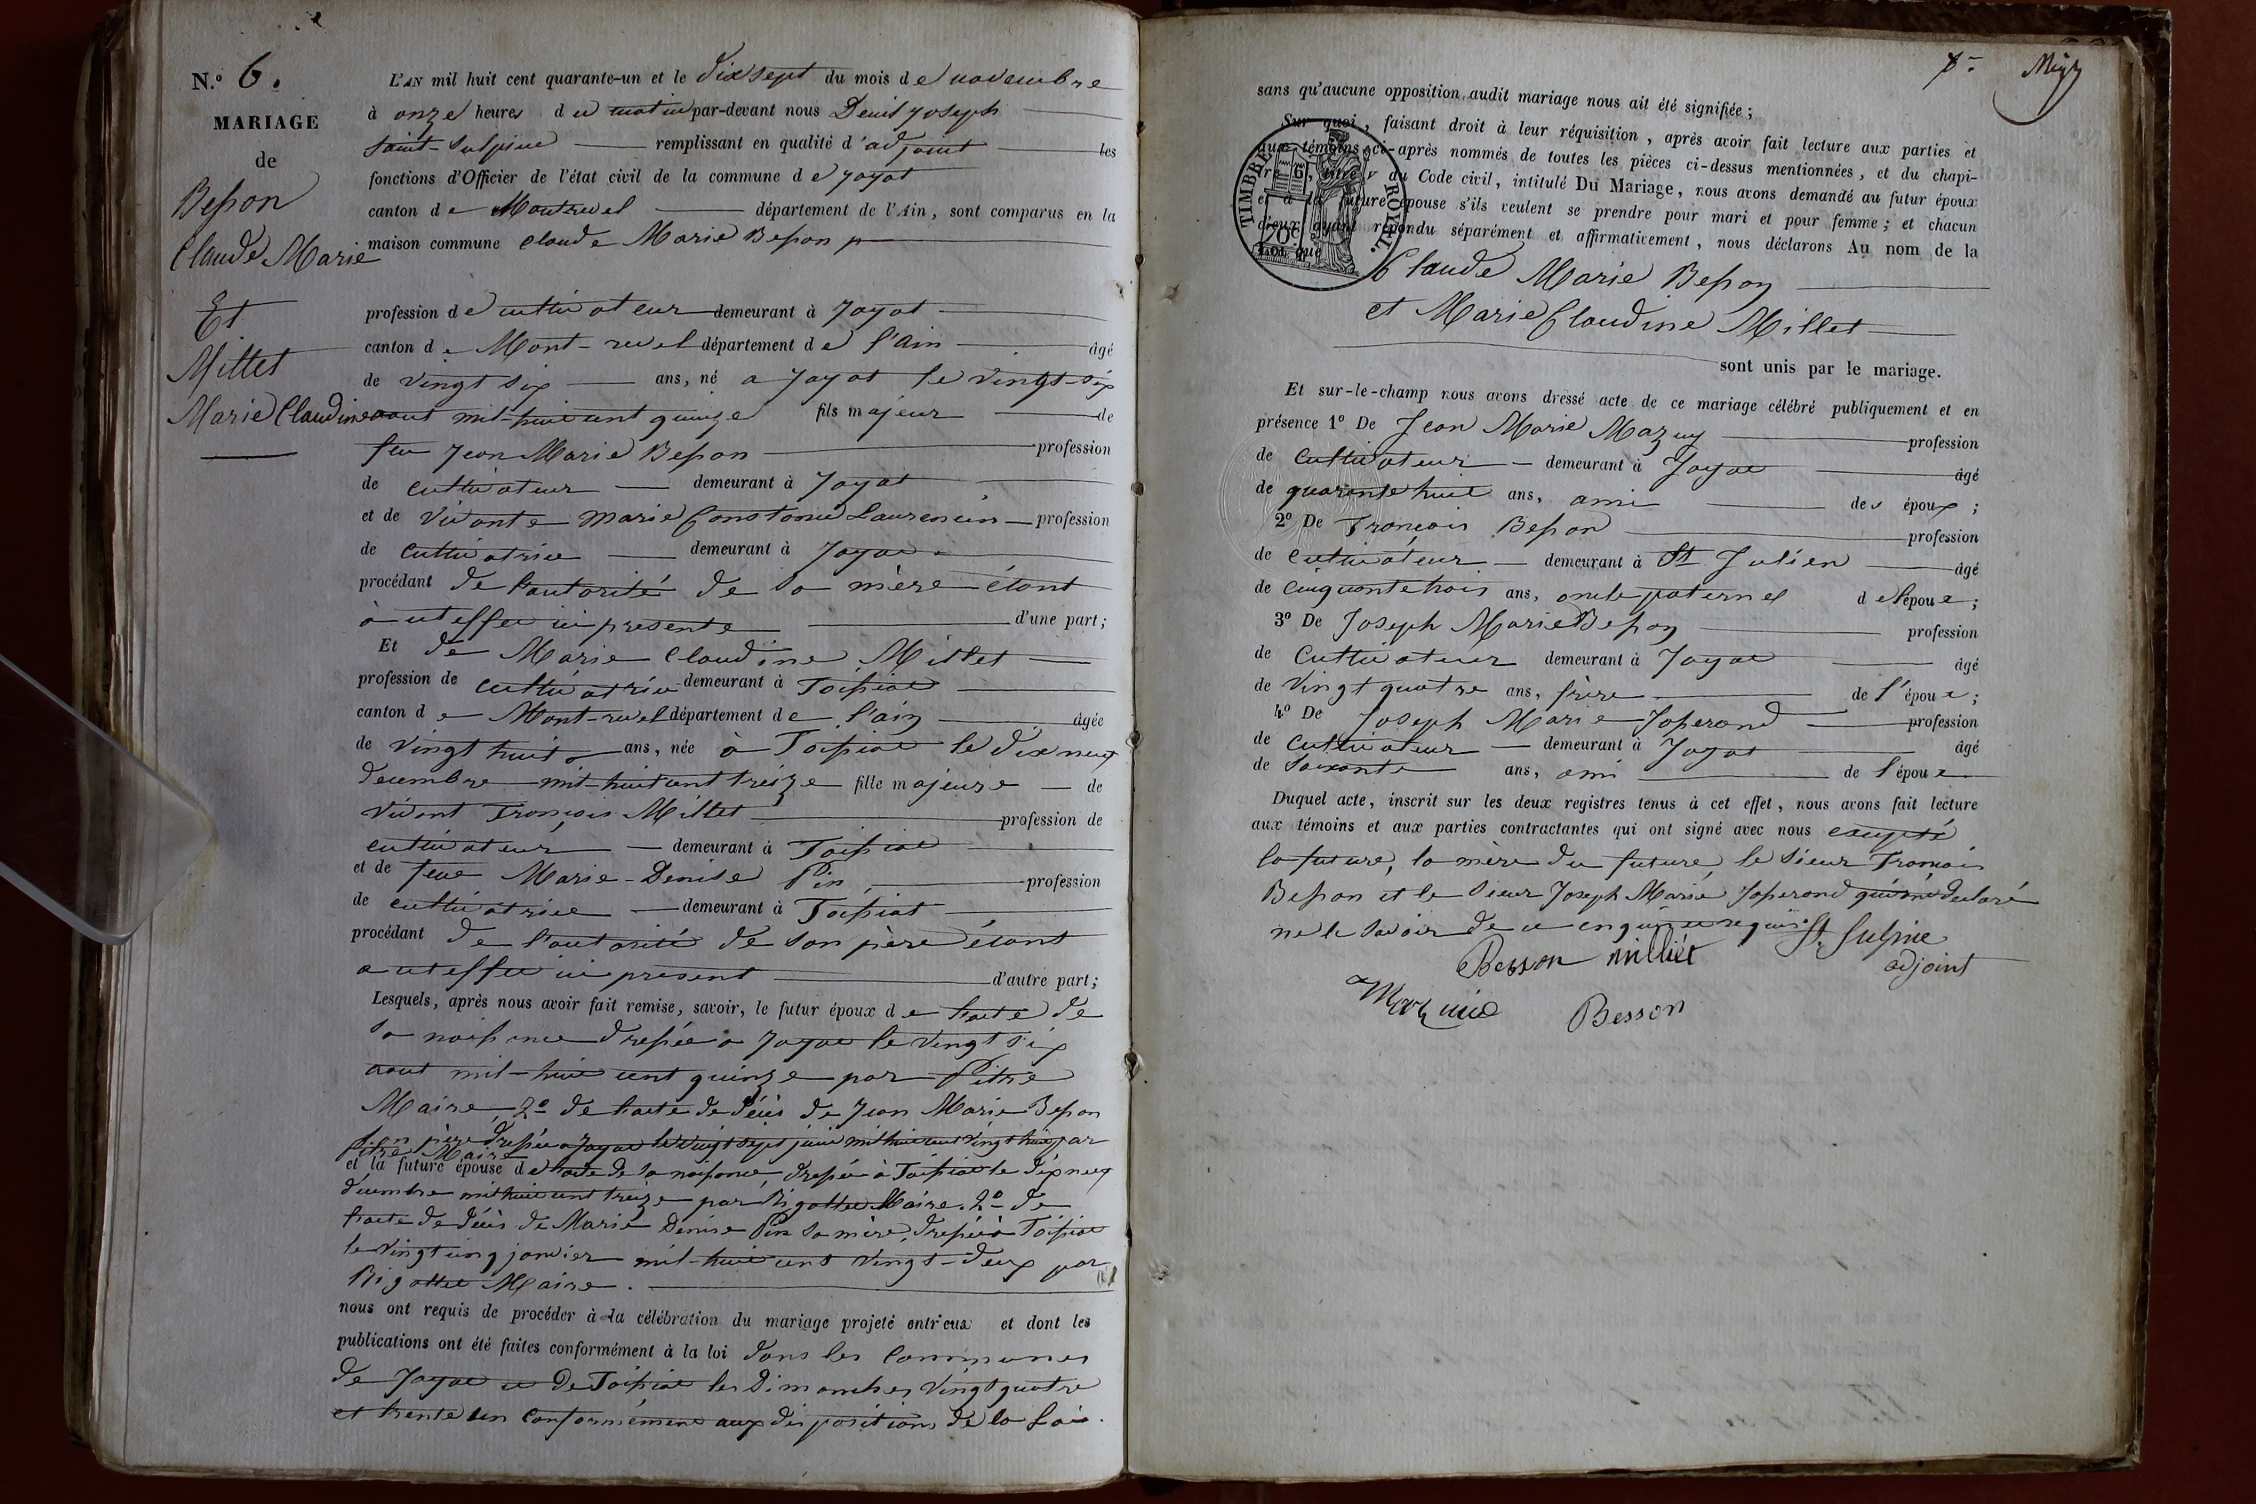 N.o 6.
MARIAGE
de
Besson
Claude Marie
Et
Millet
Marie Claudine
L'AN mil huit cent quarante-un et le dix sept du mois de novembre
à onze heures du matin par-devant nous Denis Joseph
Saint-Sulpice remplissant en qualité d'adjoint les
fonctions d'Officier de l'état civil de la commune de Jayat
canton de Montrevel département de l'Ain, sont comparus en la
maison commune Claude Marie Besson
profession de cultivateur demeurant à Jayat
canton de Mont-revel département de l'Ain âgé
de vingt six ans, né a Jayat le vingt-six
aout mil-huit cent quinze fils majeur de
feu Jean Marie Besson profession
de cultivateur demeurant à Jayat
et de vivante Marie Constance Laurencin profession
de cultivatrice demeurant à Jayat
procédant de l'autorité de sa mère étant
à cet effet ici presente d'une part;
Et de Marie Claudine Millet
profession de cultivatrice demeurant à Foissiat
canton de Mont-revel département de l'ain âgée
de vingt huit ans, née à Foissiat le dix neuf
decembre mil-huit cent treize fille majeure de
vivant François Millet profession de
cultivateur demeurant à Foissiat
et de feue Marie-Denise Pin profession
de cultivatrice demeurant à Foissiat
procédant de l'autorité de son père étant
a cet effet ici present d'autre part;
Lesquels, après nous avoir fait remise, savoir, le futur époux de l'acte de
sa naissance dressée a Jayat le vingt six
aout mil-huit cent quinze par Pitre
Maire, 2o de l'acte de décès de Jean Marie Besson
son père dressée a Jayat le vingt sept juin mil huit cent vingt huit par
Pitre Maire
et la future épouse de l'acte de sa naissance, dressée à Foissiat le dix neuf
décembre mil huit cent treize par Rigottet Maire. 2o de
l'acte de décès de Marie Denise Pin sa mère, dressée à Foissiat
le vingt cinq janvier mil-huit cent vingt-deux par
Rigottet Maire.
nous ont requis de procéder à la célébration du mariage projeté entr'eux et dont les
publications ont été faites conformément à la loi dans les communes
de Jayat et de Foissiat les Dimanches vingt quatre
et trente un conformément aux dispositions de la Loi.
sans qu'aucune opposition audit mariage nous ait été signifiée;
Sur quoi, faisant droit à leur réquisition, après avoir fait lecture aux parties et
aux témoins ci-après nommés de toutes les pièces ci-dessus mentionnées, et du chapi-
tre 6, titre v du Code civil, intitulé Du Mariage, nous avons demandé au futur époux
et à la future épouse s'ils veulent se prendre pour mari et pour femme; et chacun
d'eux ayant répondu séparément et affirmativement, nous déclarons Au nom de la
Loi que
TIMBRE ROYAL.
70c
Claude Marie Besson
et Marie Claudine Millet
sont unis par le mariage.
Et sur-le-champ nous avons dressé acte de ce mariage célébré publiquement et en
présence 1o De Jean Marie Mazuy profession
de cultivateur demeurant à Jayat âgé
de quarante huit ans, ami des époux;
2o De François Besson profession
de cultivateur demeurant à St Julien âgé
de cinquante trois ans, oncle paternel de l'époux;
3o De Joseph Marie Besson profession
de cultivateur demeurant à Jayat âgé
de vingt quatre ans, frère de l'époux;
4o De Joseph Marie Josserand profession
de cultivateur demeurant à Jayat âgé
de soixante ans, ami de l'époux
Duquel acte, inscrit sur les deux registres tenus à cet effet, nous avons fait lecture
aux témoins et aux parties contractantes qui ont signé avec nous excepté
la future, la mère du future, le sieur François
Besson et le sieur Joseph Marie Josserand qui ont déclaré
ne le savoir de ce enquis et requis St Sulpice
adjoint
Besson milliet
Besson